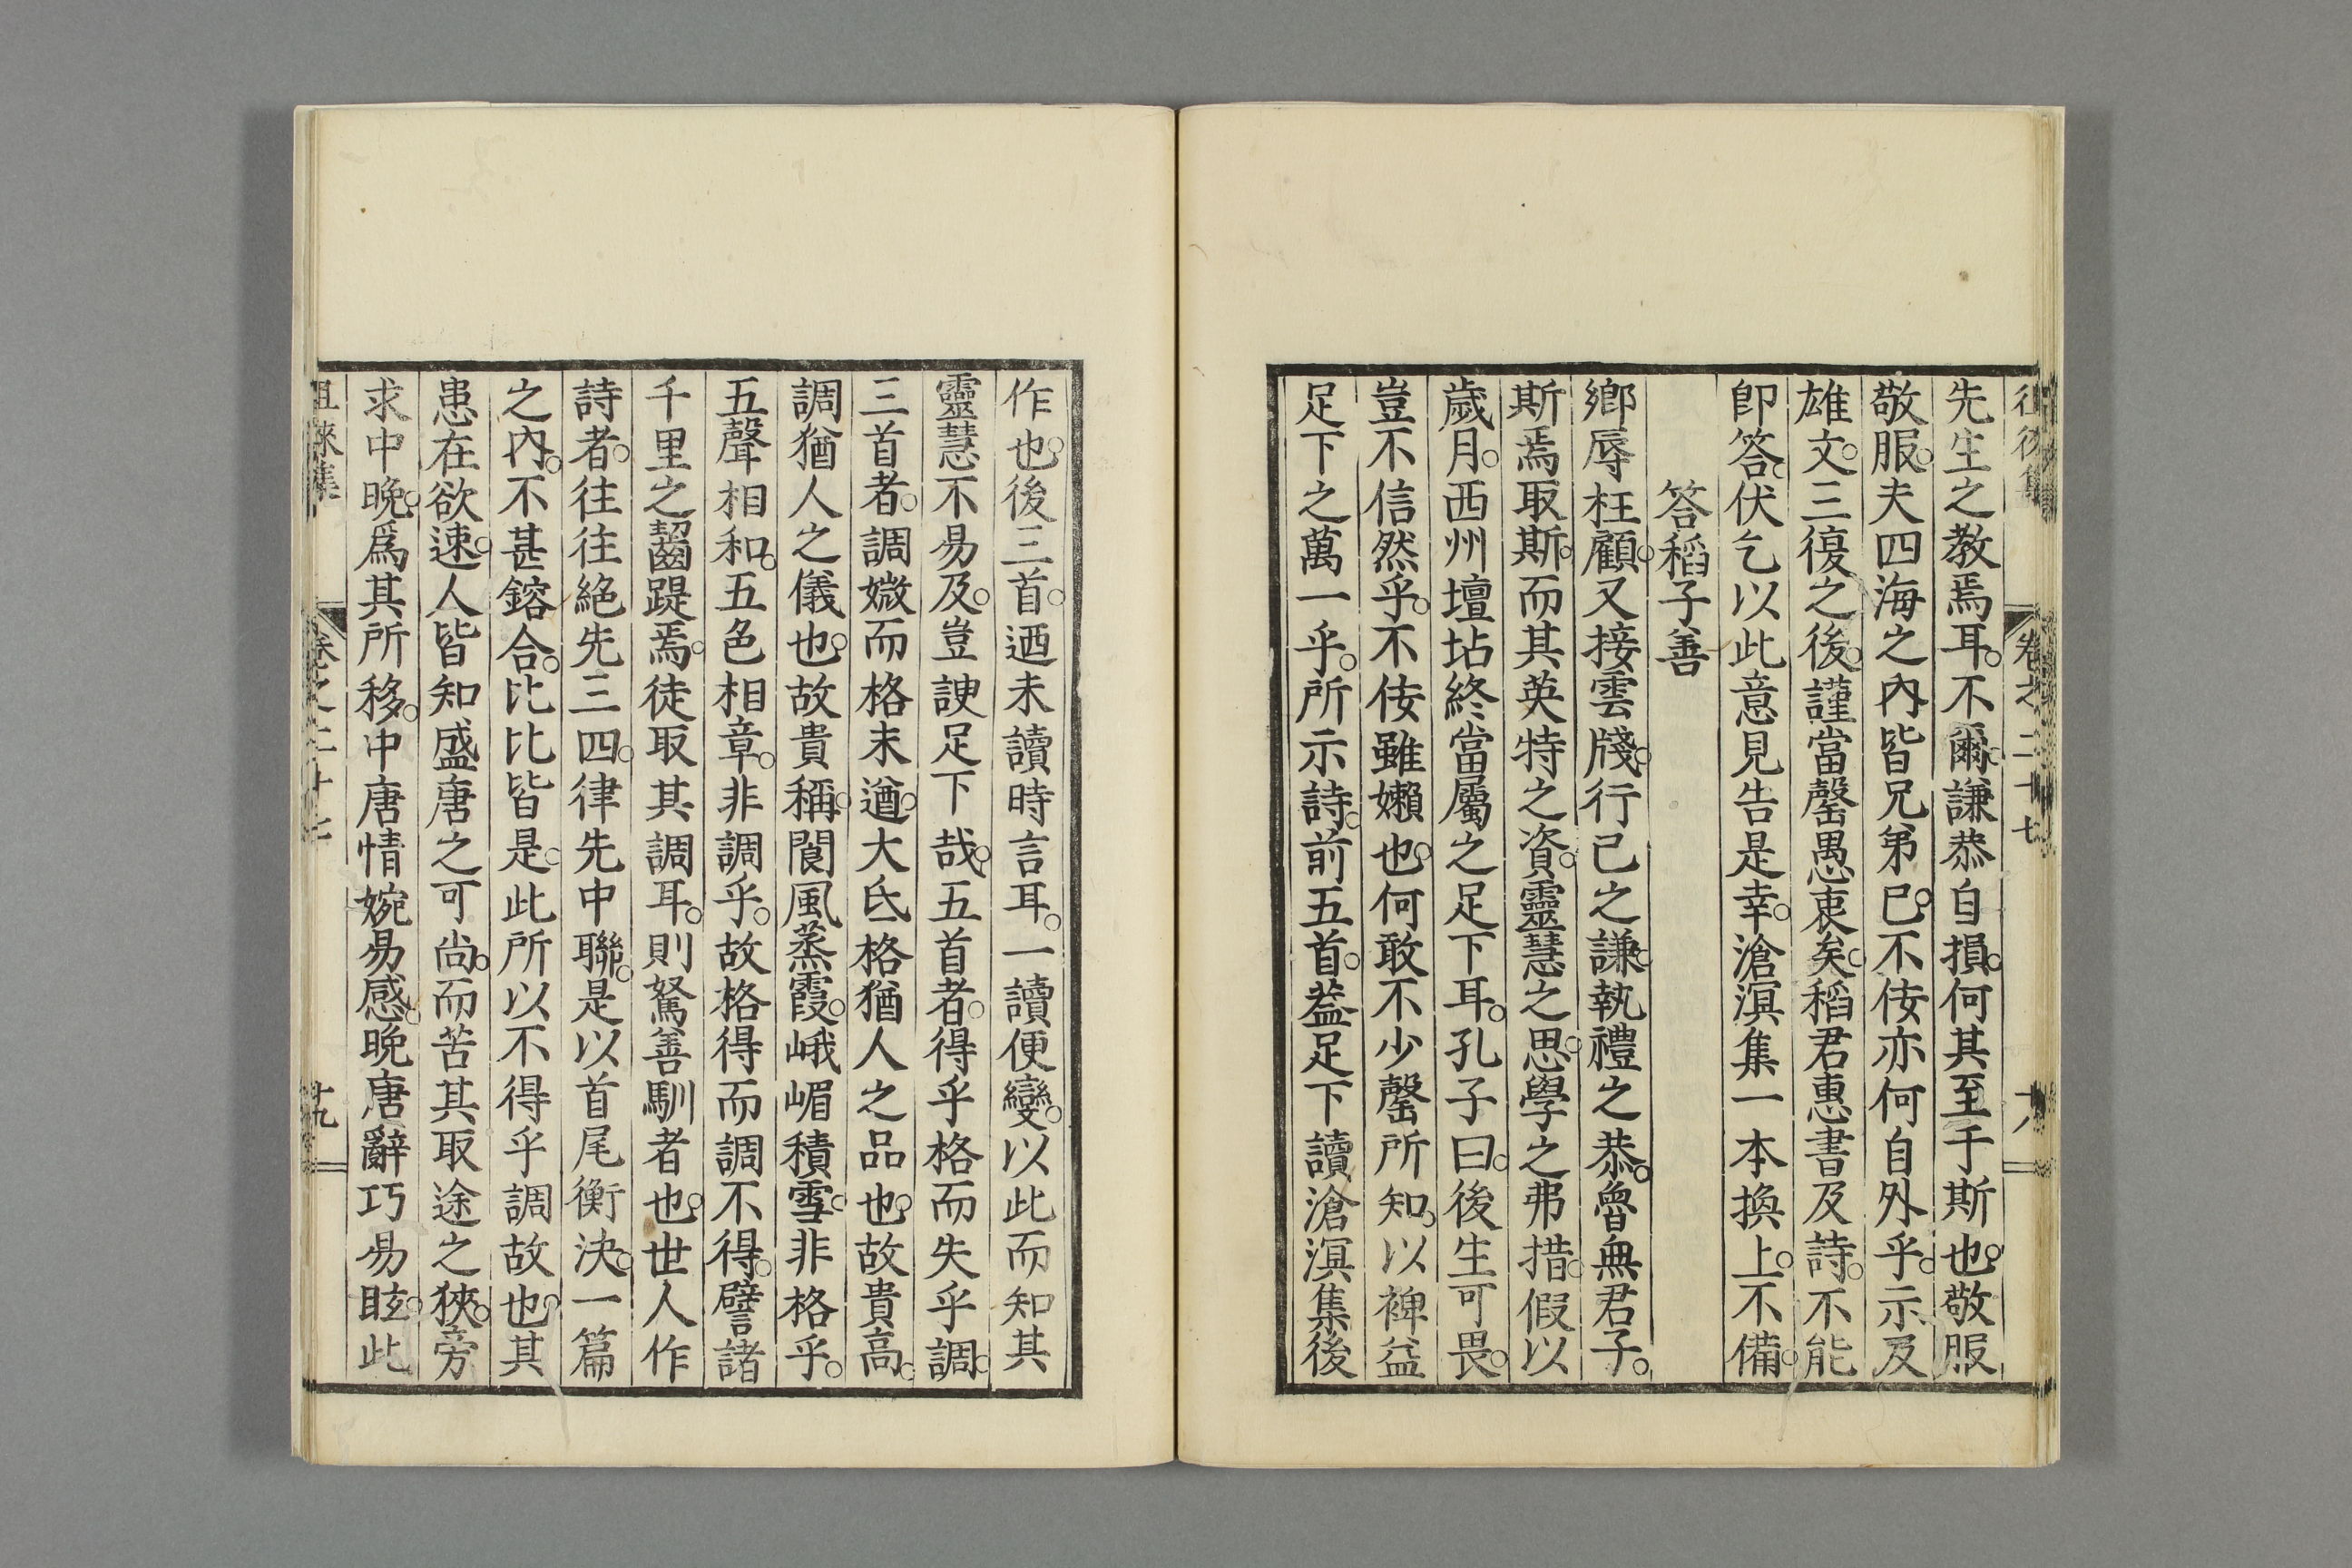 先生之教焉耳。不爾。謙恭自損。何其至于斯也。敬服
敬服。夫四海之內皆兄弟已。不佞亦何自外乎。示及
雄文。三復之後。謹當罄愚衷矣。稻君惠書及詩。不能
卽答。伏乞以此意見告是幸。滄溟集一本換上。不備。
答稻子善
鄉辱枉顧。又接雲牋。行己之謙。執禮之恭。魯無君子。
斯焉取斯。而其英特之資。靈慧之思。學之弗措。假以
歲月。西州壇坫終當屬之足下耳。孔子曰。後生可畏。
豈不信然乎。不佞雖嬾也。何敢不少罄所知。以裨益
足下之萬一乎。所示詩。前五首。葢足下讀滄溟集後
作也。後三首。迺未讀時言耳。一讀便變。以此而知其
靈慧不易及。豈謏足下哉。五首者。得乎格而失乎調。
三首者。調媺而格未遒。大氐格猶人之品也。故貴高。
調猶人之儀也。故貴稱。閬風蒸霞。峨嵋積雪。非格乎。
五聲相和。五色相章。非調乎。故格得而調不得。譬諸
千里之齧踶焉。徒取其調耳。則駑善馴者也。世人作
詩者。往往絕先三四。律先中聯。是以首尾衡決。一篇
之內。不甚鎔合。比比皆是。此所以不得乎調故也。其
患在欲速。人皆知盛唐之可尚。而苦其取途之狹。旁
求中晚。爲其所移。中唐情婉易感。晚唐辭巧易眩。此
徂徠集
卷之二十七
十九
卷之二十七